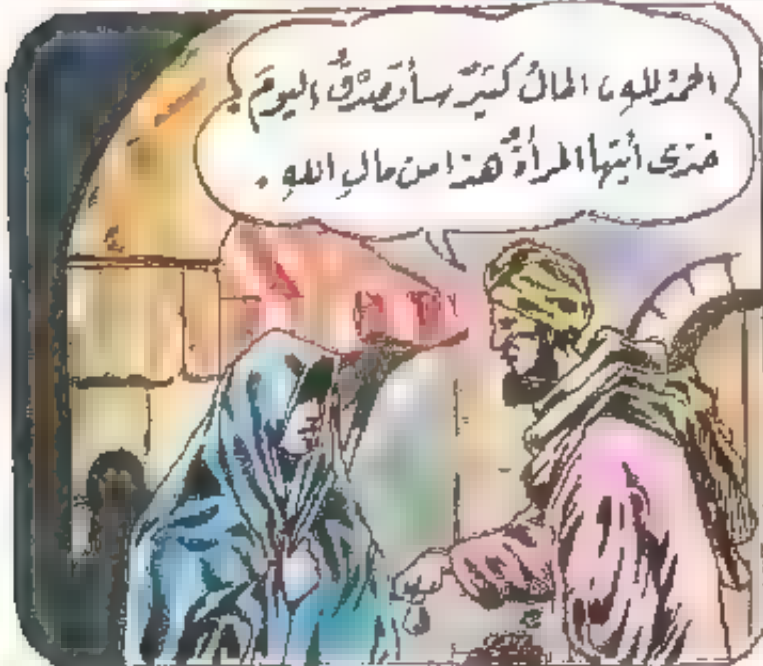 الحمدُ للهِ، المالُ كثيرٌ سأتصدّقُ اليومَ.
خذى أيتها المرأةُ هذا من مالِ اللهِ.